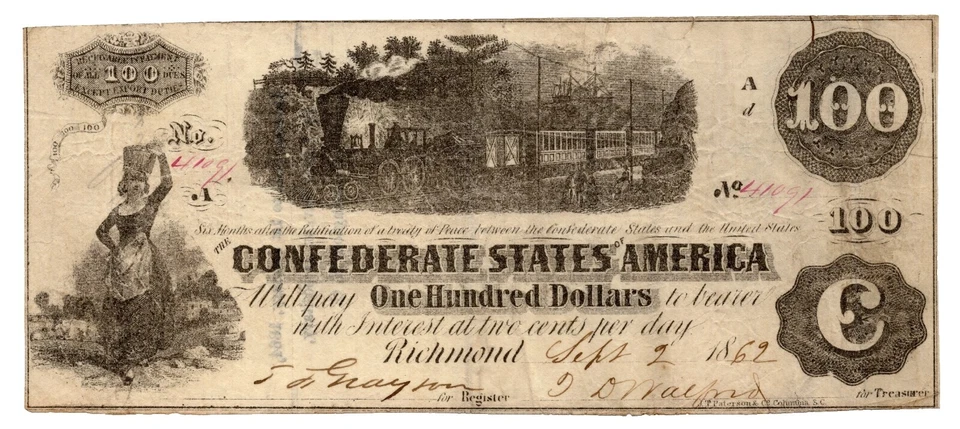 RECEIVABLE IN PAYMENT
OF ALL 100 DUES
EXCEPT EXPORT DUTIES
100 100
No.
41091
A
A
d
100
No 41091
100
Six Months after the Ratification of a treaty of Peace between the Confederate States and the United States
THE
CONFEDERATE STATES OF AMERICA
Will pay One Hundred Dollars to bearer
with Interest at two cents per day
Richmond Sept 2 1862
C
for Register
for Treasurer
J.T. Paterson & Co Columbia, S.C.